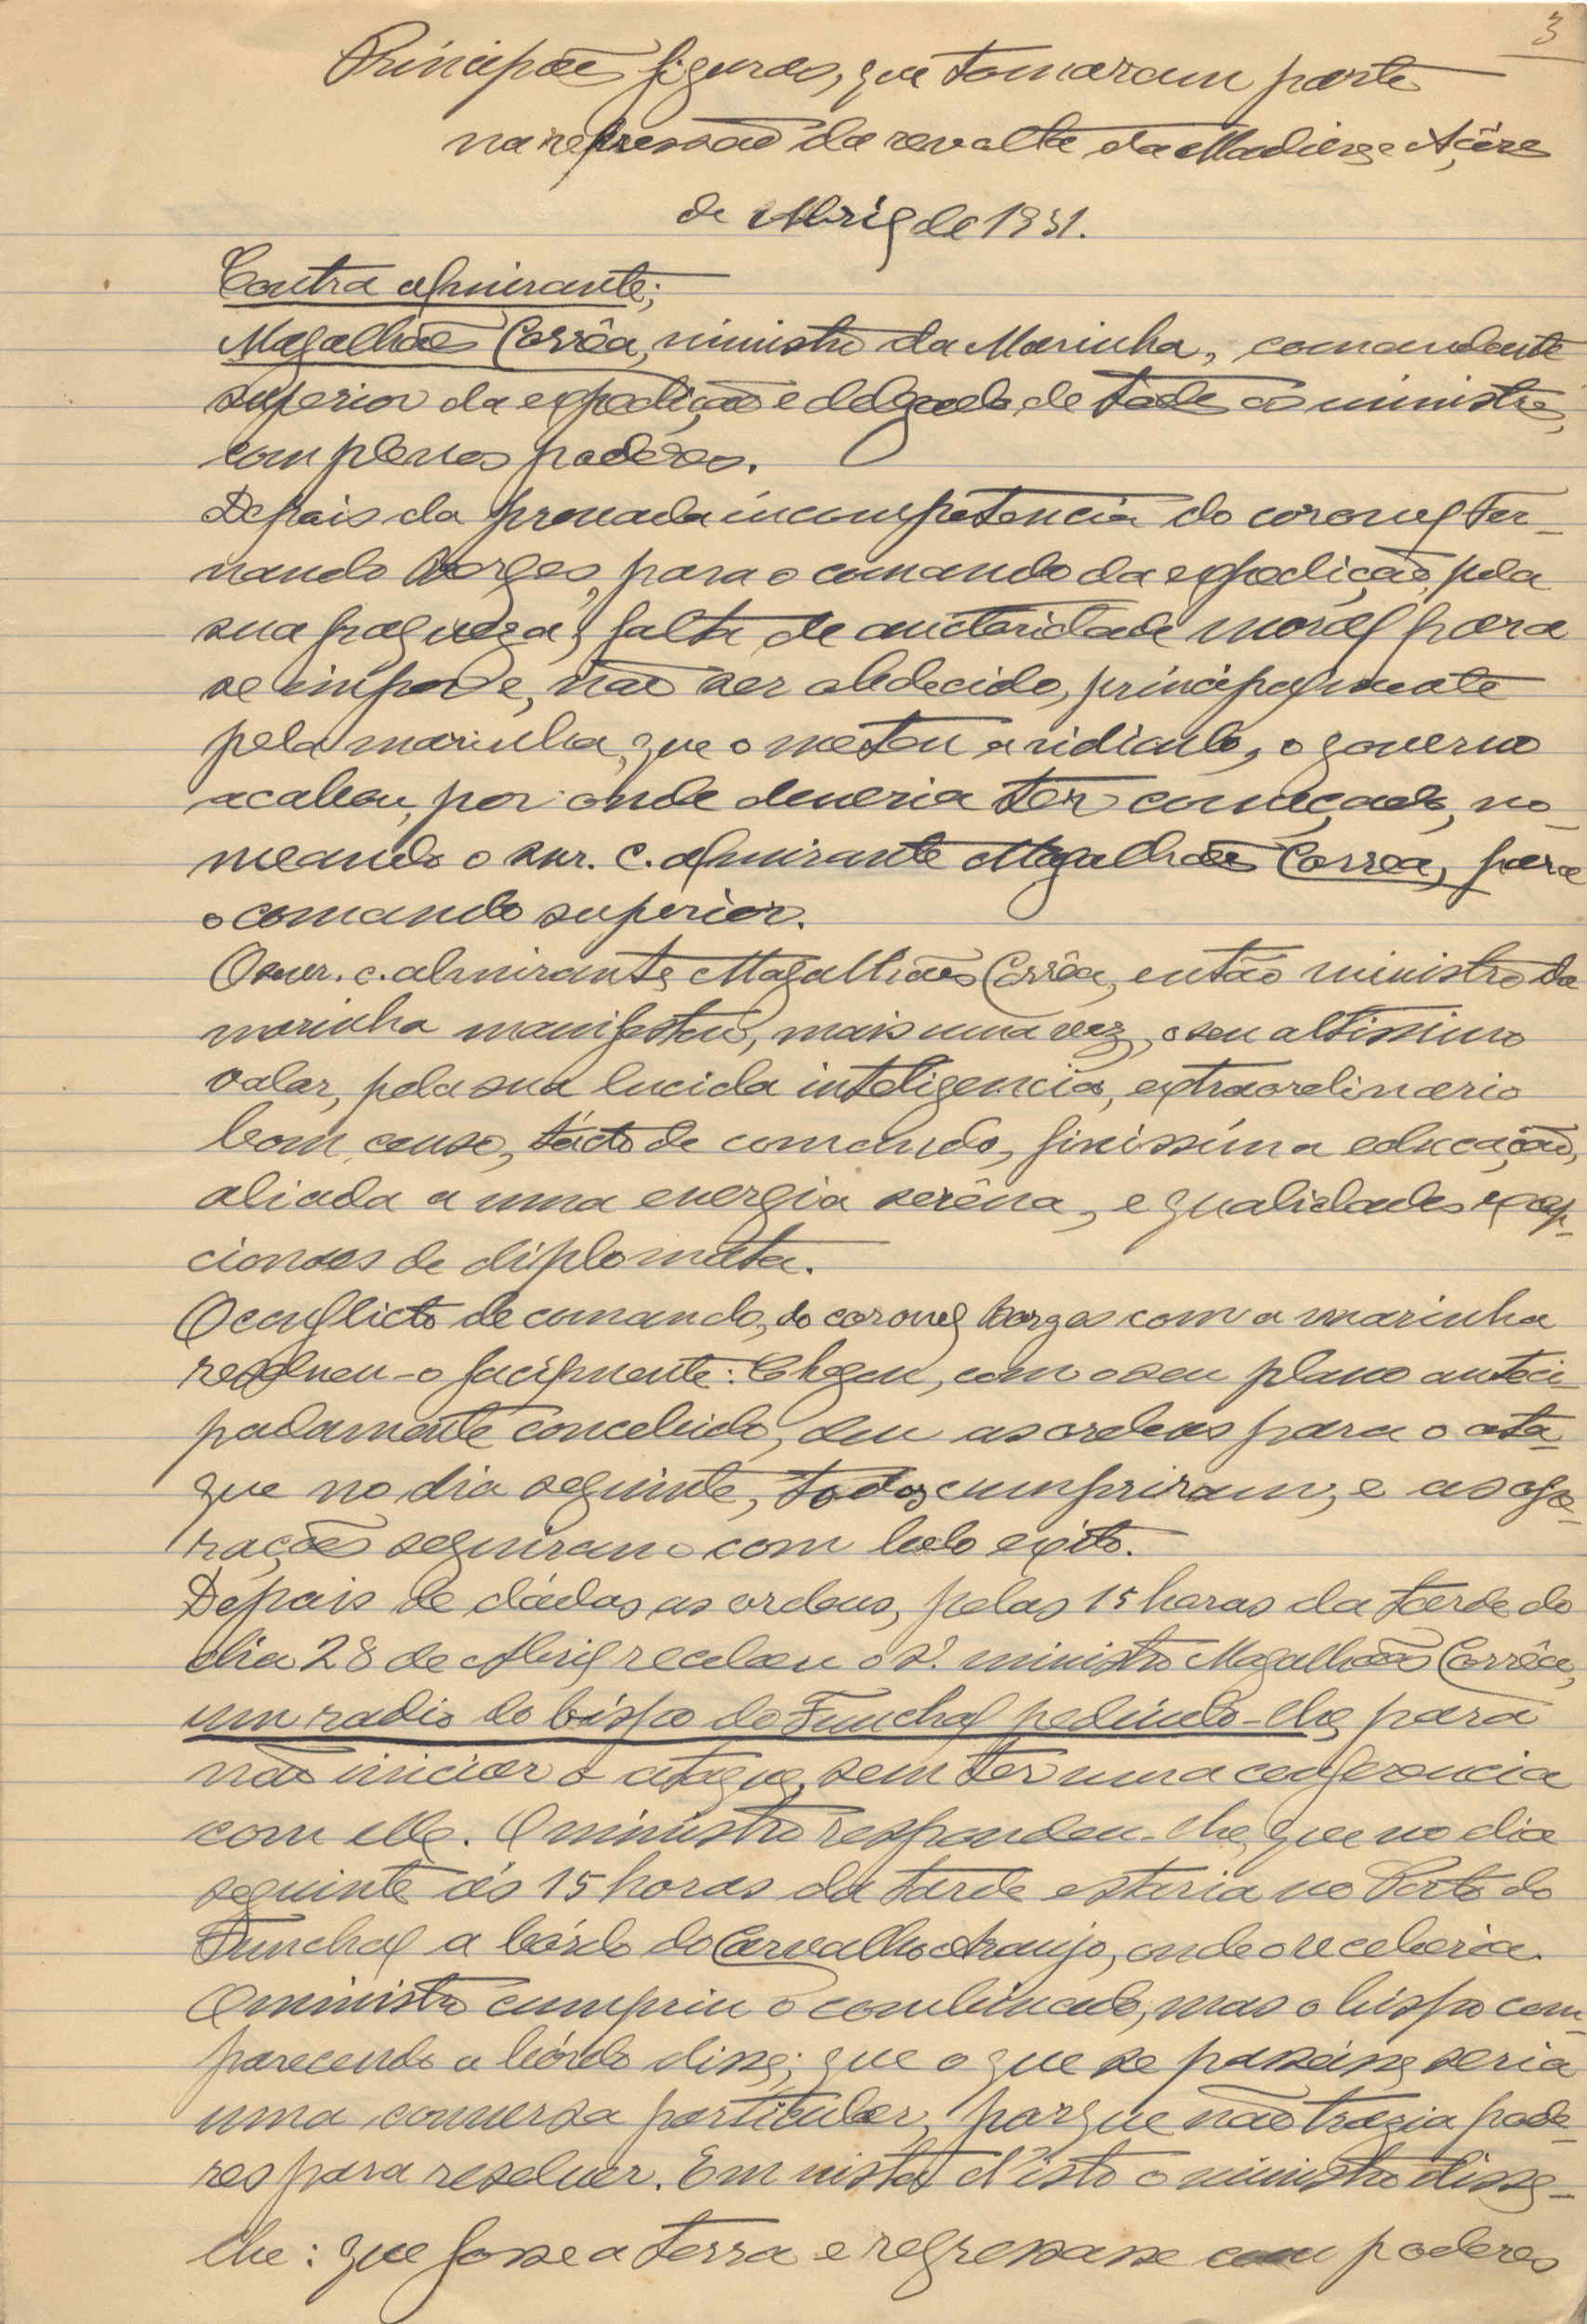 3
Principaes figuras, que tomaram parte
na repressão da revolta da Madeira e Açôres
de Abril de 1931.
Contra almirante;
Magalhães Corrêa, ministro da Marinha, comandante
superior da expedição e delegado de todos os ministros,
com plenos poderes.
Depois da provada incompetencia do coronel Fer-
nando Borges, para o comando da expedição, pela
sua fraqueza, falta de auctoridade moral para
se impor e, não ser obedecido, principalmente
pela marinha, que o meteu a ridiculo, o governo
acabou, por onde deveria ter começado, no-
meando o snr. c. almirante Magalhães Correa, para
o comando superior.
O snr. c. almirante Magalhães Corrêa, então ministro da
marinha manifestou, mais uma vez, o seu altissimo
valor, pela sua lucida inteligencia, extraordinario
bom censo, tácto de comando, finissima educação,
aliada a uma energia serêna, e qualidades excep-
cionaes de diplomata.
O conflicto de comando, do coronel Borges com a marinha
resolveu-o facilmente: Chegou, com o seu plano anteci-
padamente concebido, deu as ordens para o ata-
que no dia seguinte, todos cumpriram, e as ope-
rações seguiram com bélo exito.
Depois de dádas as ordens, pelas 15 horas da tarde do
dia 28 de Abril recebeu o s. ministro Magalhães Corrêa,
um radio do bispo do Funchal pedindo-lhe, para
não iniciar o ataque, sem ter uma conferencia
com elle. O ministro respondeu-lhe, que no dia
seguinte ás 15 horas da tarde estaria no Porto do
Funchal a bórdo do Carvalho Araujo, onde o receberia.
O ministro cumpriu o combinado, mas o bispo com-
parecendo a bórdo disse; que o que se passásse seria
uma conversa particular, porque não trazia pode-
res para resolver. Em vista d'isto o ministro disse-
lhe: que fosse a terra e regressasse com poderes